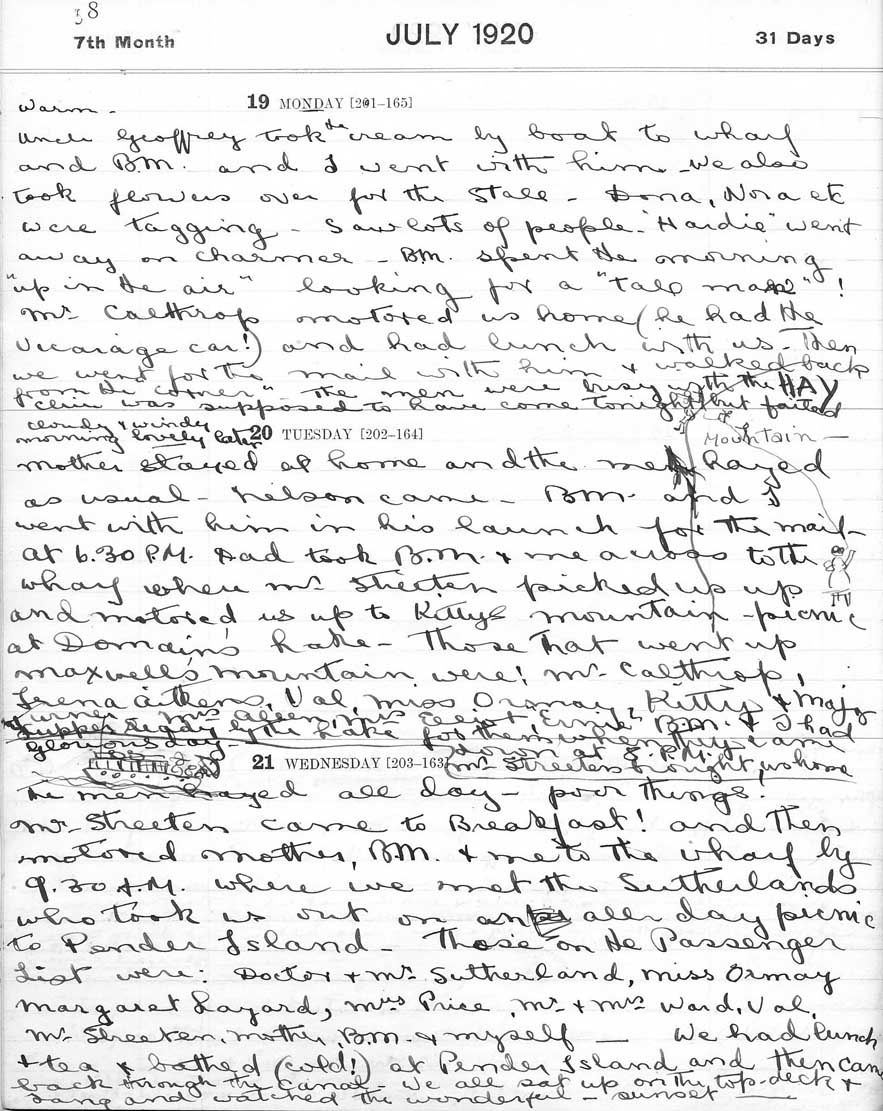 38
7th Month JULY 1920 31 Days
19 MONDAY [201-165]
Warm -
Uncle Geoffrey took the cream by boat to wharf
and B.M. and I went with him - We also
took flowers over for the Stall - Dona, Nora etc
were tagging - Saw lots of people - "Hardie" went
away on Charmer - B.M. spent the morning
"up in the air" looking for a "tall man" !
Mr Calthrop motored us home (he had the
Vicarage car!) and had lunch with us - Then
we went for the mail with him & walked back
from the corner - The men were busy with the HAY
was supposed to have come tonight but failed
cloudy & windy
morning lovely later
20 TUESDAY [202-164]
Mountain -
Mother stayed at home and the men hayed
as usual - Nelson came - B.M. and I
went with him in his launch for the mail -
At 6.30 P.M. Dad took B.M. & me across to the
wharf where Mr Streeten picked us up
and motored us up to Kitty's mountain - picnic
at Domain's Lake - Those that went up
Maxwell's Mountain were! Mr Calthrop,
Aitkens, Val, Miss Ormay, Kitty & Major
Turner, Mrs Mrs Elliot, "Ernie" B.M. & I had
supper ready by the Lake for them when they came
down at 8. P.M.
Mr Streeten brought us home
glorious day -
21 WEDNESDAY [203-163]
The men hayed all day - poor things!
Mr Streeten came to Breakfast! and then
motored Mother, B.M. & me to the wharf by
9.30 A.M. where we met the Sutherlands
who took us out on an all day picnic
to Pender Island - Those on the Passenger
List were: Doctor & Mrs Sutherland, Miss Ormay
Margaret Layard, Mrs Price, Mr & Mrs Ward, Val,
Mr Streeten, Mother, B.M. & myself - We had lunch
& tea & bathed (cold!) at Pender Island and then came
back through the Canal - We all sat up on the top-deck &
sang and watched the wonderful - sunset -